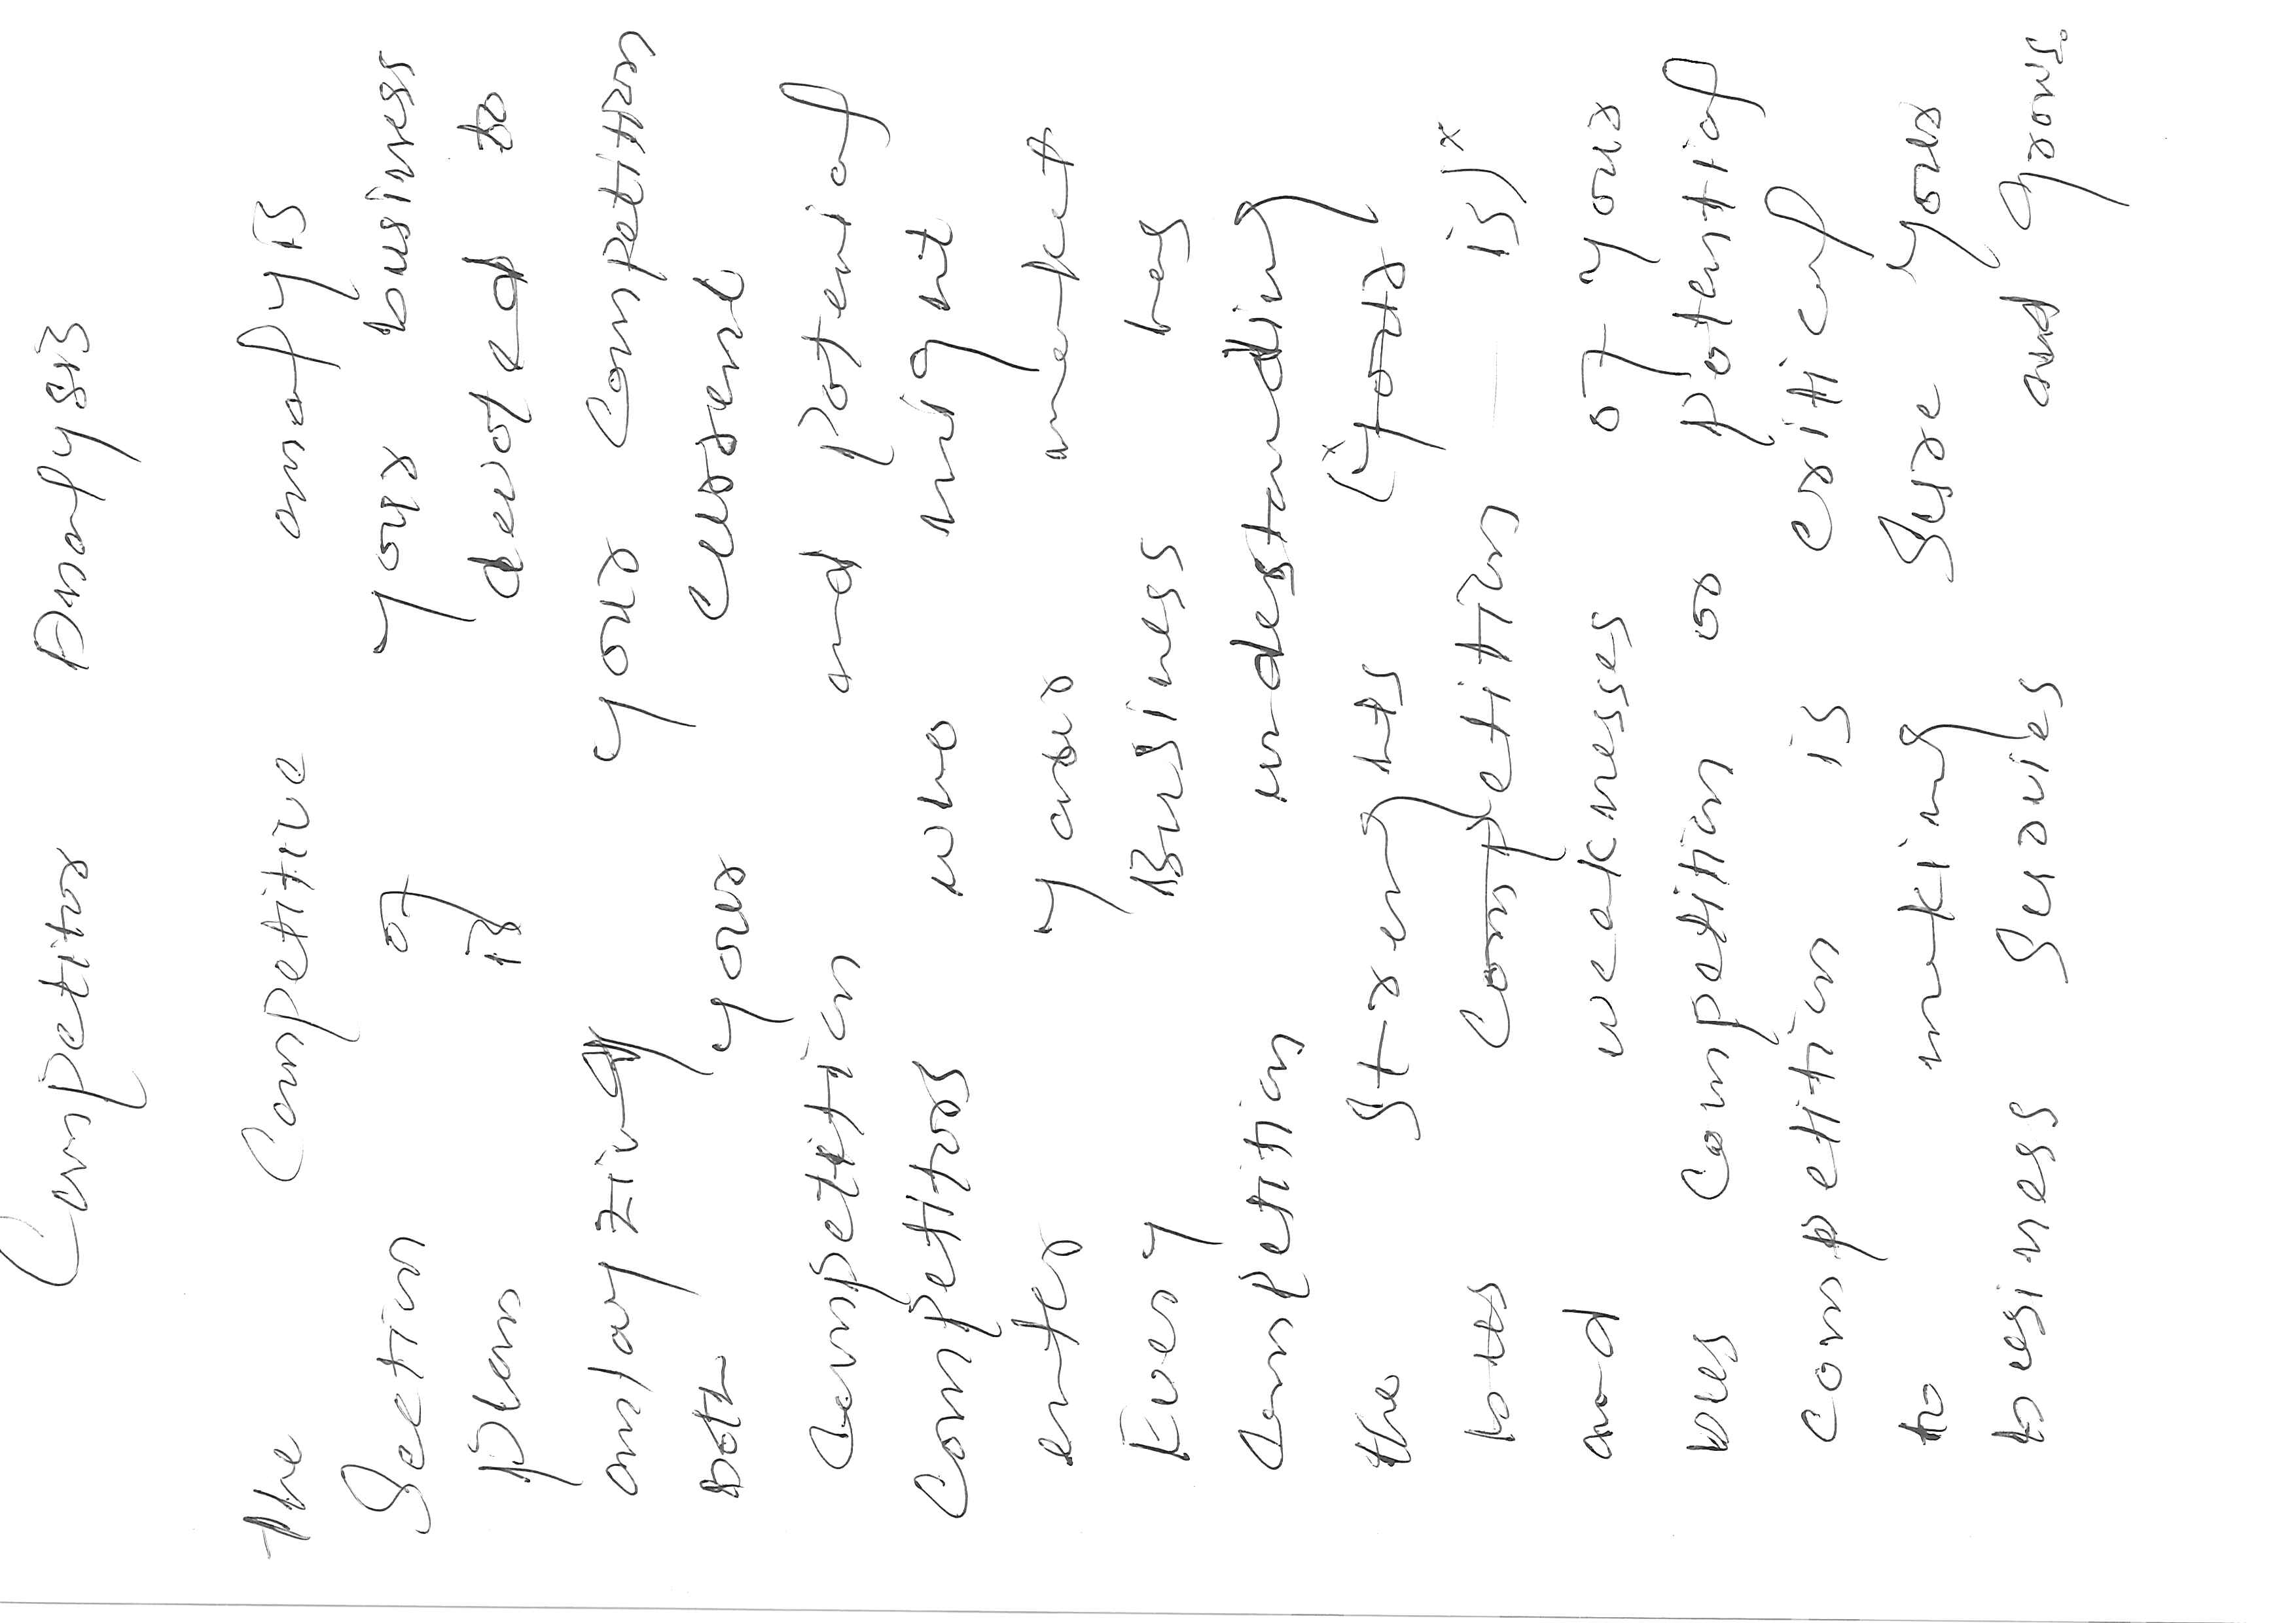 Competitor Analysis
The Competitive analyis
Section of your business
plan is devoted to
anlayzing your Competition
Both your current
Competition and potenial
Competitors who might
enter your market
Every Business has
Competition understanding
the Strenghts (your
bus Competition is)
and weaknesses of your
bus Competition or potential
competition is critical
to making Sure your
business Survies and grows.